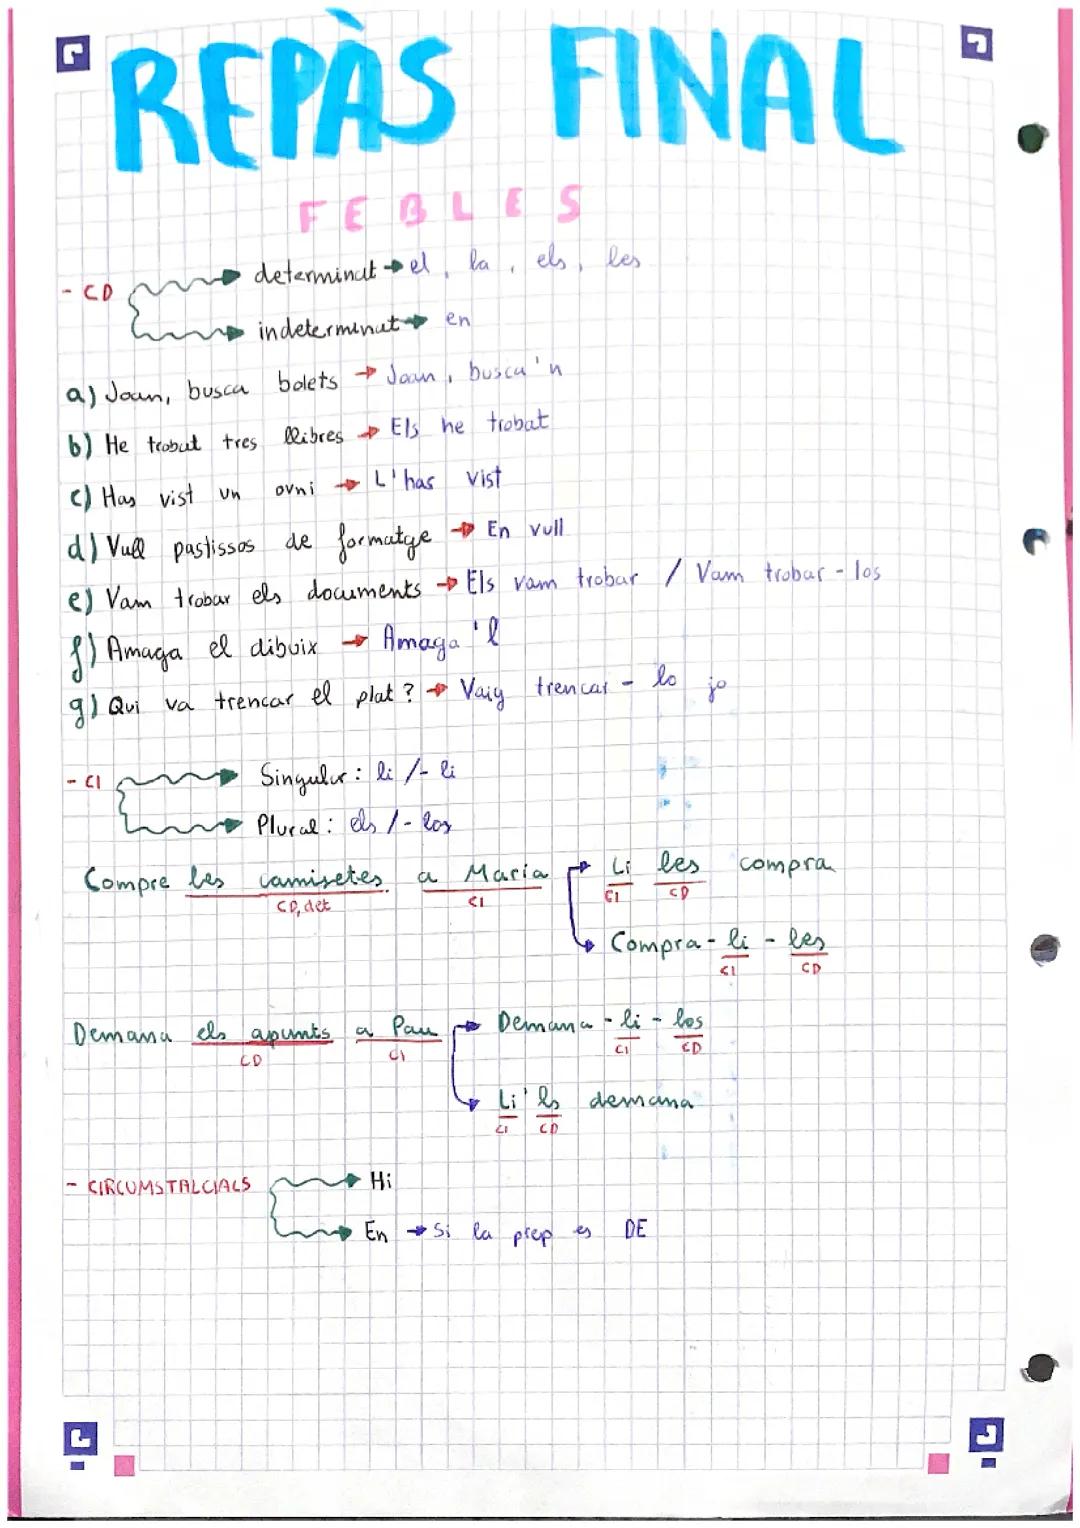 REPÀS FINAL
FEBLES
- CD → determinat → el, la, els, les
→ indeterminat → en
a) Joan, busca bolets → Joan, busca'n
b) He trobat tres llibres → Els he trobat
c) Has vist un ovni → L'has vist
d) Vull pastissos de formatge → En vull
e) Vam trobar els documents → Els vam trobar / Vam trobar-los
f) Amaga el dibuix → Amaga'l
g) Qui va trencar el plat? → Vaig trencar-lo jo
- CI → Singular: li /-li
→ Plural: els /-los
Compre les camisetes a Maria → Li les compra
CD, det CI CI CD
→ Compra-li-les
CI CD
Demana els apunts a Pau → Demana-li-los
CD CI CI CD
→ Li'ls demana
CI CD
- CIRCUMSTALCIALS → Hi
→ En → Si la prep es DE